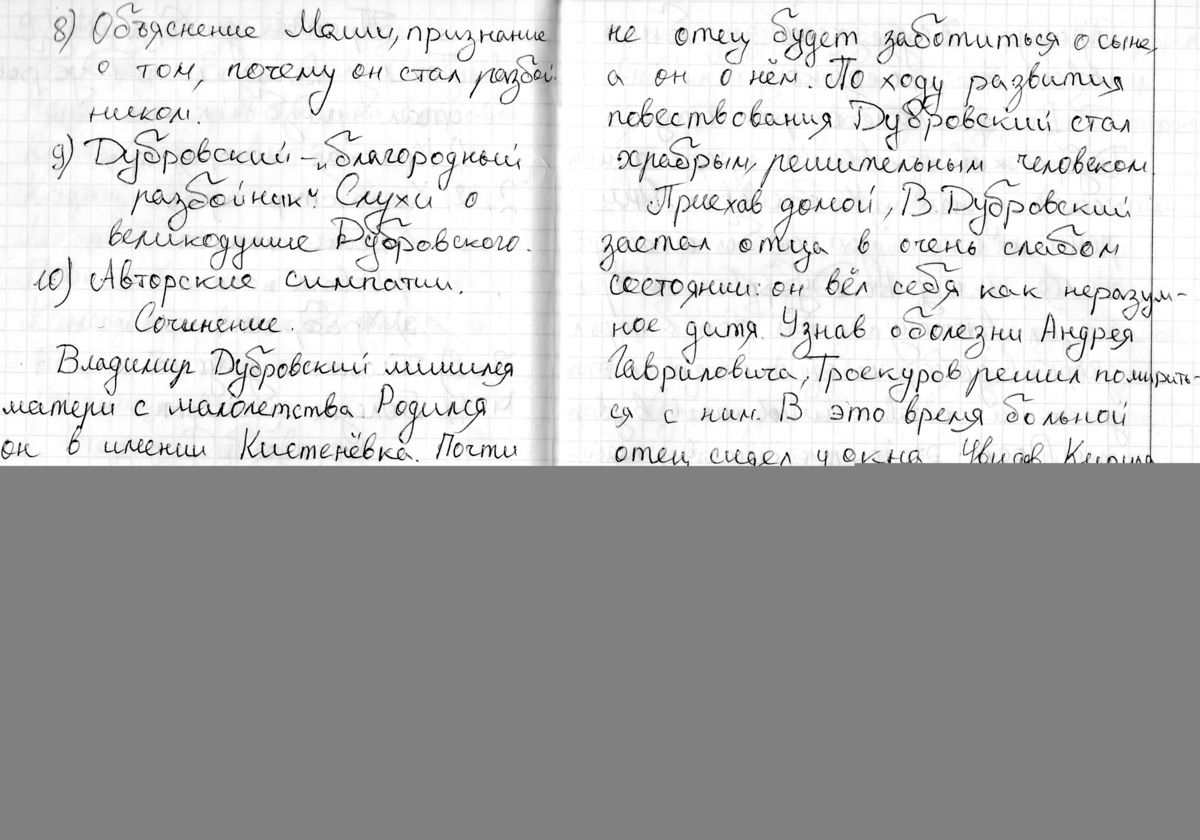 8) Объяснение Маши, признание
о том, почему он стал разбой-
ником.
9) Дубровский – „благородный
разбойник“. Слухи о
великодушие Дубровского.
10) Авторские симпатии.
Сочинение.
Владимир Дубровский лишился
матери с малолетства Родился
он в имении Кистенёвка. Почти
не отец будет заботиться о сыне,
а он о нём. По ходу развития
повествования Дубровский стал
храбрым, решительным человеком
Приехав домой, В Дубровский
застал отца в очень слабом
состоянии: он вёл себя как неразум-
ное дитя. Узнав о болезни Андрея
Гавриловича, Троекуров решил помирить-
ся с ним. В это время больной
отец сидел у окна Увидев Кирила